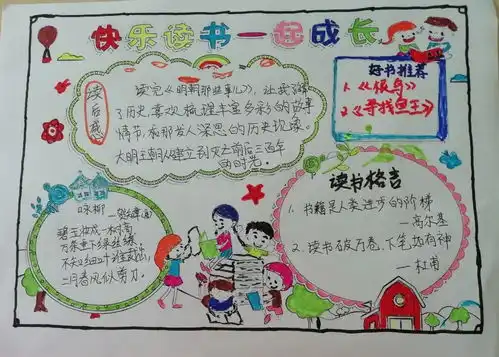 快乐读书一起成长
读后感
读完《明朝那些事儿》,让我了解
了历史,喜欢梳理丰富多彩的故事
情节和那发人深思的历史现象。
大明王朝从建立到灭亡前后三百年
的时光。
好书推荐
1.《银鸟》
2《寻找鱼王》
咏柳
碧玉妆成一树高
万条垂下绿丝绦
不知细叶谁裁出,
二月春风似剪刀.
读书格言
1. 书籍是人类进步的阶梯
—高尔基
2. 读书破万卷,下笔如有神
—杜甫